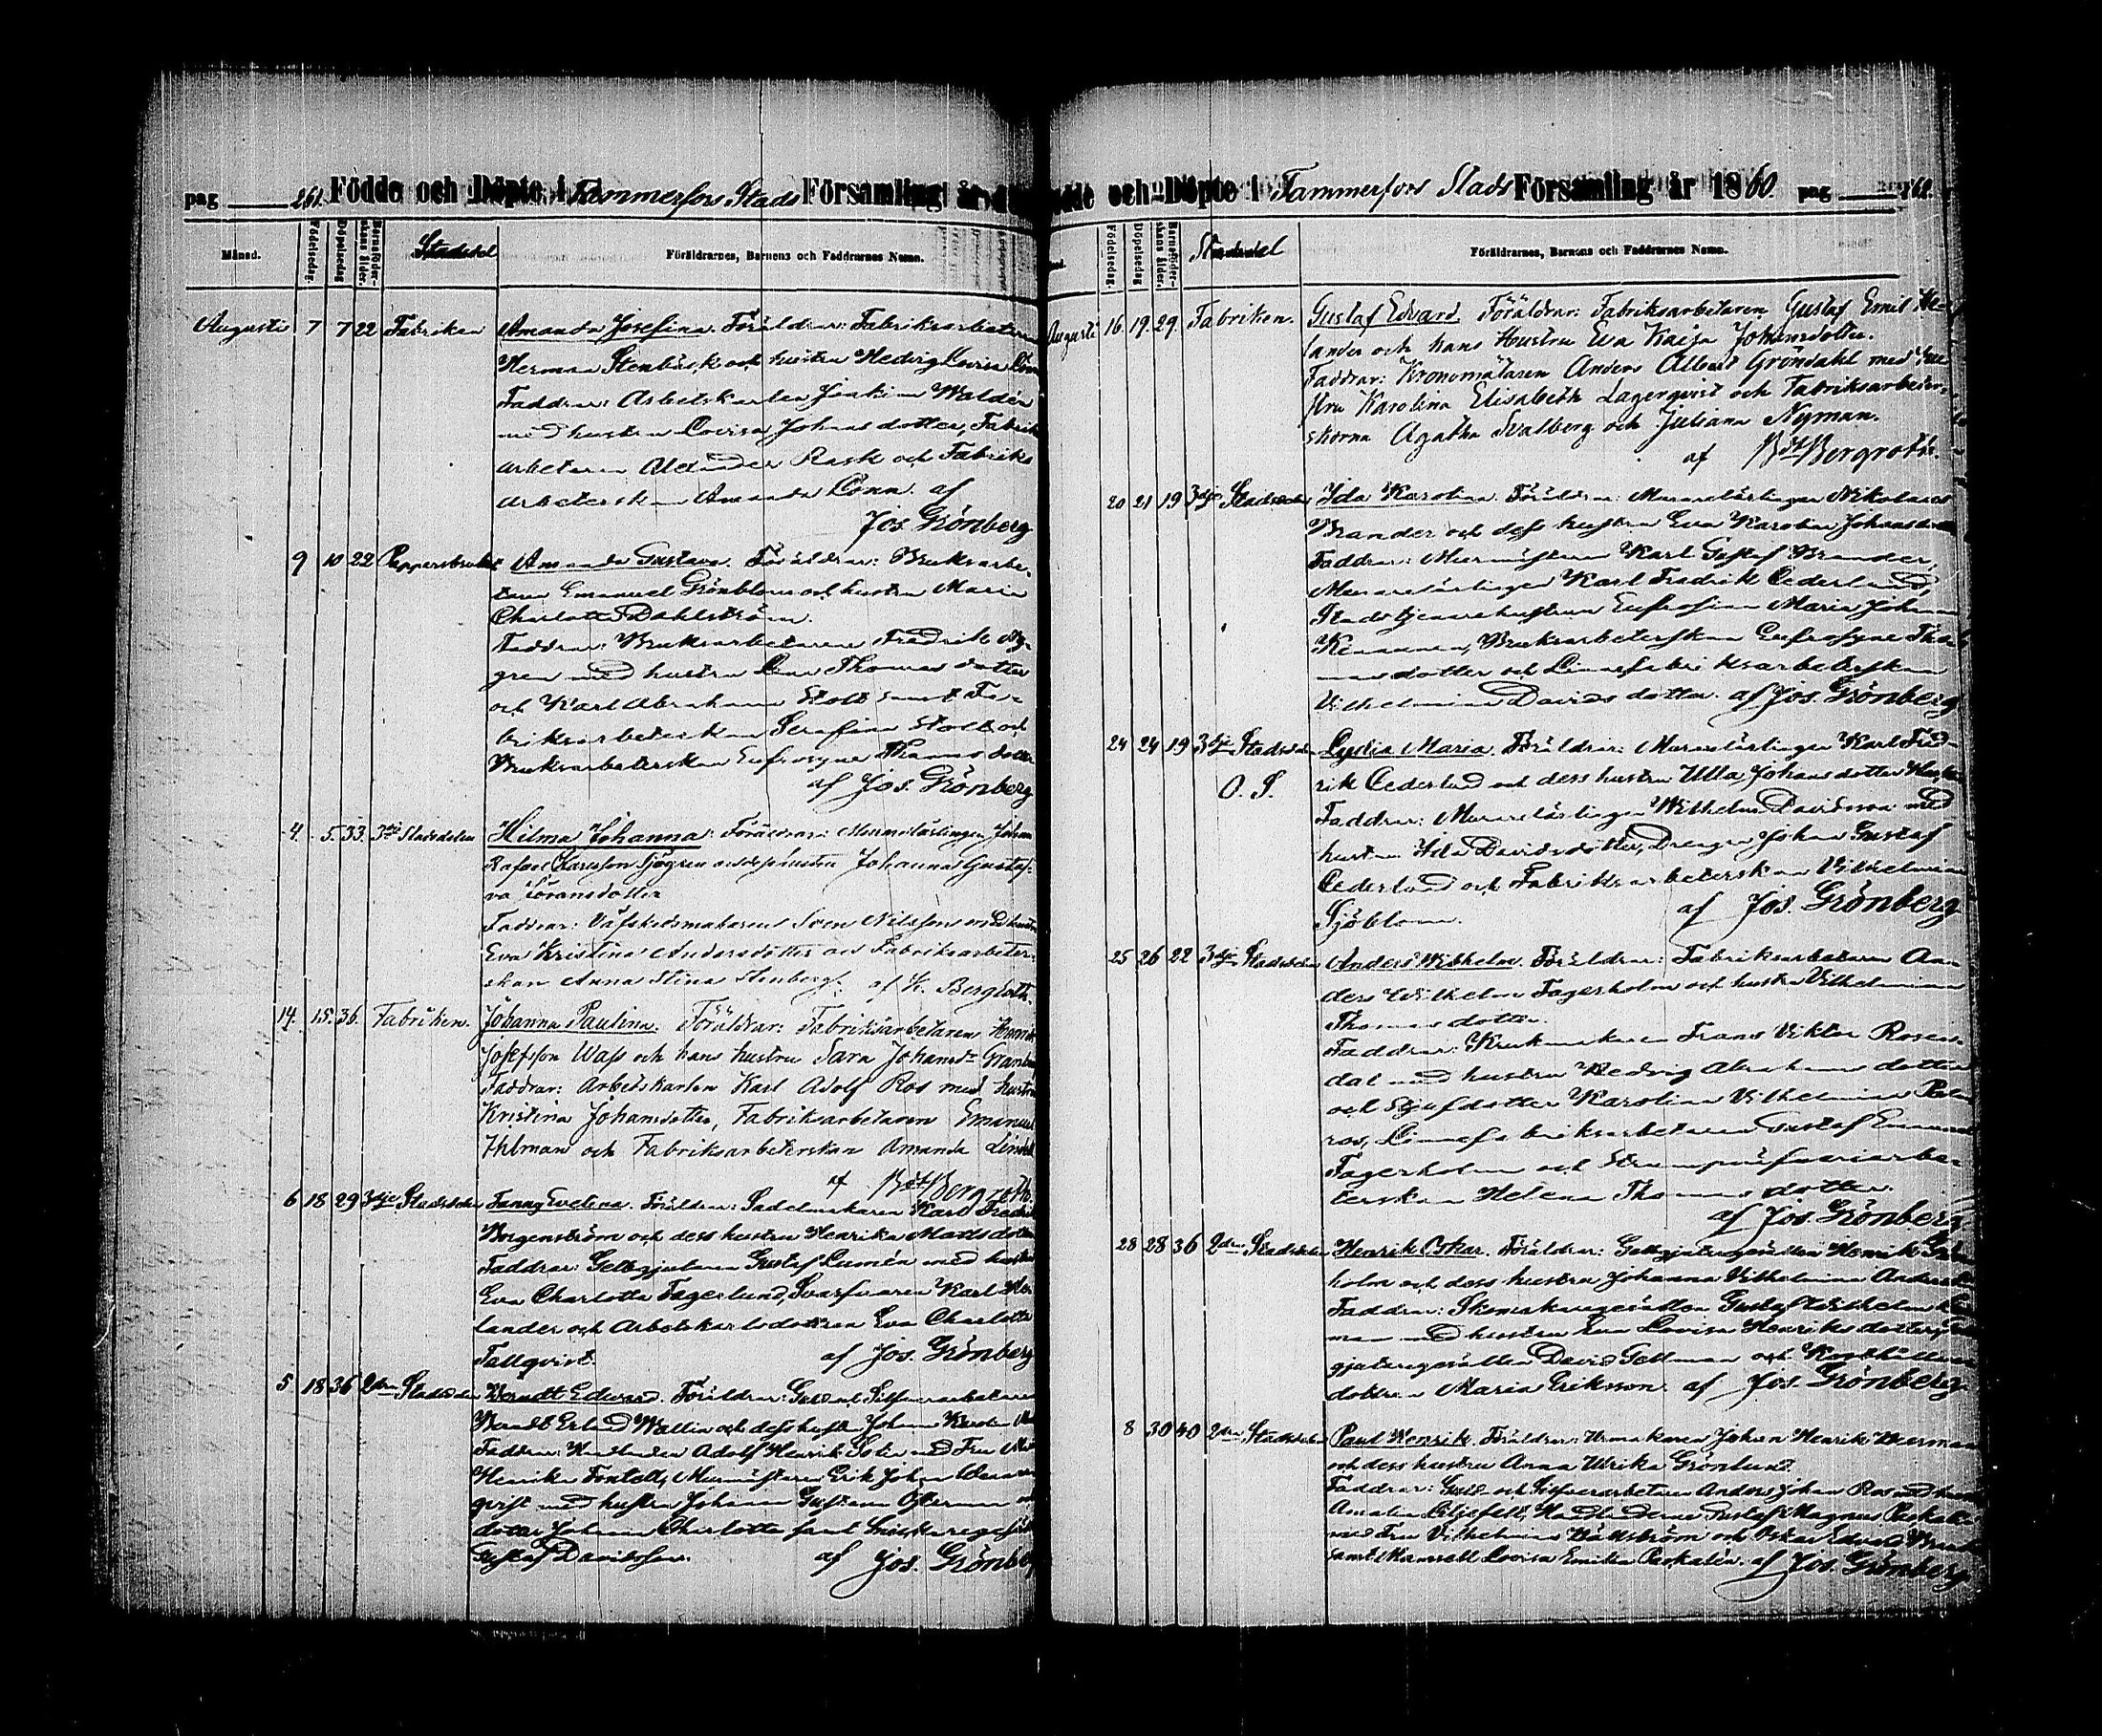 pag 261. Födde och Döpte i Tammerfors Stads Församling år
Månad. Födelsedag. Döpelsedag Barnaföderskans ålder. Stadsdel Föräldrarnes, Barnens och Faddrarnes Namn.
Augusti 7 7 22 Fabriken Amanda Josefina. Föräldrar: Fabriksarbetaren
Herman Stenbäck och hustru Hedvig Lovisa
Faddrar: Arbetskarlen Joakim Walden
med hustru Lovisa Johansdotter, Fabriks
arbetaren Alexander Rask och Fabriks
arbeterskan Amanda Lönn. af
Jos. Grönberg
9 10 22 Pappersbruket Amanda Gustava. Föräldrar: Bruksarbe-
taren Emanuel Grönblom och hustru Maria
Charlotta Dahlström.
Faddrar: Bruksarbetaren Fredrik Ny-
gren med hustru Lena Thomasdotter
och Karl Abraham Stolt samt Fa-
briksarbeterskan Serafina Stolt och
Bruksarbeterskan Eufrosyne Thomasdotter
af Jos. Grönberg
4. 5. 33. 3dje Stadsdelen Hilma Johanna. Föräldrar: Murarelärlingen Johan
Rafael Karlsson Sjögren och dess hustru Johanna Gustaf-
va Göransdotter
Faddrar: Väfskedsmakaren Sven Nilsson med hustru
Eva Kristina Andersdotter och Fabriksarbeter-
skan Anna Stina Stenberg. af K. Bergroth.
14. 15. 36. Fabriken. Johanna Paulina. Föräldrar: Fabriksarbetaren Henrik
Josefsson Wass och hans hustru Sara Johansdr
Faddrar: Arbetskarlen Karl Adolf Ros med hustru
Kristina Johansdotter, Fabriksarbetaren Emanuel
Ihlman och Fabriksarbeterskan Amanda
af Bergroth.
6 18 29 3dje Stadsdelen Fanny Evelina. Föräldrar: Sadelmakaren Karl Fredrik
Borgenström och dess hustru Henrika Mattsdotter
Faddrar: Gelbgjutaren Gustaf Lumén med hustru
Eva Charlotta Fagerlund, Svarfvaren Karl
lander och Arbetskarlsdottren Eva Charlotta
Tallqvist. af Jos. Grönberg
5 18 36 2dra Stadsdelen Berndt Edvard. Föräldrar: Guld och Silfverarbetaren
Berndt Erland Wallin och dess hustru Johanna
Faddrar: Handlanden Adolf Henrik Solin med Fru
Henrika Fontell, Murmästaren Erik Johan
qvist med hustru Johanna Gustava Österman och
dotter Johanna Charlotta samt
Gustaf Davidsson. af Jos. Grönberg
Födde och Döpte i Tammerfors Stads Församling år 1860. pag
Födelsedag. Döpelsedag Barnaföderskans ålder. Stadsdel Föräldrarnes, Barnens och Faddrarnes Namn.
Augusti 16. 19. 29. Fabriken. Gustaf Edvard. Föräldrar: Fabriksarbetaren Gustaf Emil He-
lander och hans Hustru Eva Kaisa Johansdotter.
Faddrar: Kronomätaren Anders Albert Gröndahl med hu-
stru Karolina Elisabeth Lagerqvist och Fabriksarbeter-
skorna Agatha Svalberg och Juliana Nyman.
af Bergroth.
20 21 19 3dje Stadsdelen Ida Karolina. Föräldrar: Murarelärlingen Nikolaus
Brander och dess hustru Eva Karolina Johansdotter
Faddrar: Murmästaren Karl Gustaf Brander,
Murarelärlingen Karl Fredrik Cederlund,
Stadstjenarehustrun Eufrosina Maria Johanna
Kinnunen, Bruksarbeterskan Eufrosyne Tho-
masdotter och Linnefabriksarbeterskan
Vilhelmina Davidsdotter. af Jos. Grönberg
24 24 19 3dje Stadsdelen Lydia Maria. Föräldrar: Murarelärlingen Karl Fred-
O. S. rik Cederlund och dess hustru Ulla Johansdotter
Faddrar: Murarelärlingen Wilhelm Davidsson med
hustru Ida Davidsdotter, Drengen Johan Gustaf
Cederlund och Fabriksarbeterskan Vilhelmina
Sjöblom. af Jos. Grönberg
25 26 22 3dje Stadsdelen Anders Wilhelm. Föräldrar: Fabriksarbetaren An-
ders Wilhelm Fagerholm och hustru Vilhelmina
Thomasdotter.
Faddrar: Krukmakaren Frans Viktor Rosen-
dal med hustru Hedvig Abrahamsdotter
och Styfdotter Karolina Vilhelmina Palm-
ros, Linnefabriksarbetaren Gustaf Emanuel
Fagerholm och Strumpväfveriarbe-
terskan Helena Thomasdotter.
af Jos. Grönberg
28 28 36 2dra Stadsdelen Henrik Oskar. Föräldrar: Gelbgjutaregesällen Henrik
holm och dess hustru Johanna Vilhelmina
Faddrar: Skomakaregesällen Gustaf Wilhelm
man med hustru Eva Lovisa Henriksdotter,
gjutaregesällen David Gellman och
dottren Maria Eriksson. af Jos. Grönberg
8 30 40 2dra Stadsdelen Paul Henrik. Föräldrar: Urmakaren Johan Henrik Weerman
och dess hustru Anna Ulrika Grönlund.
Faddrar: Guld och Silfverarbetaren Anders Johan Ros med hustru
Amalia Liljefelt, Handlandene Gustaf Magnus
med Fru Vilhelmina Bäckström och Oskar Edvard
samt Mamsell Lovisa Emilia af Jos. Grönberg